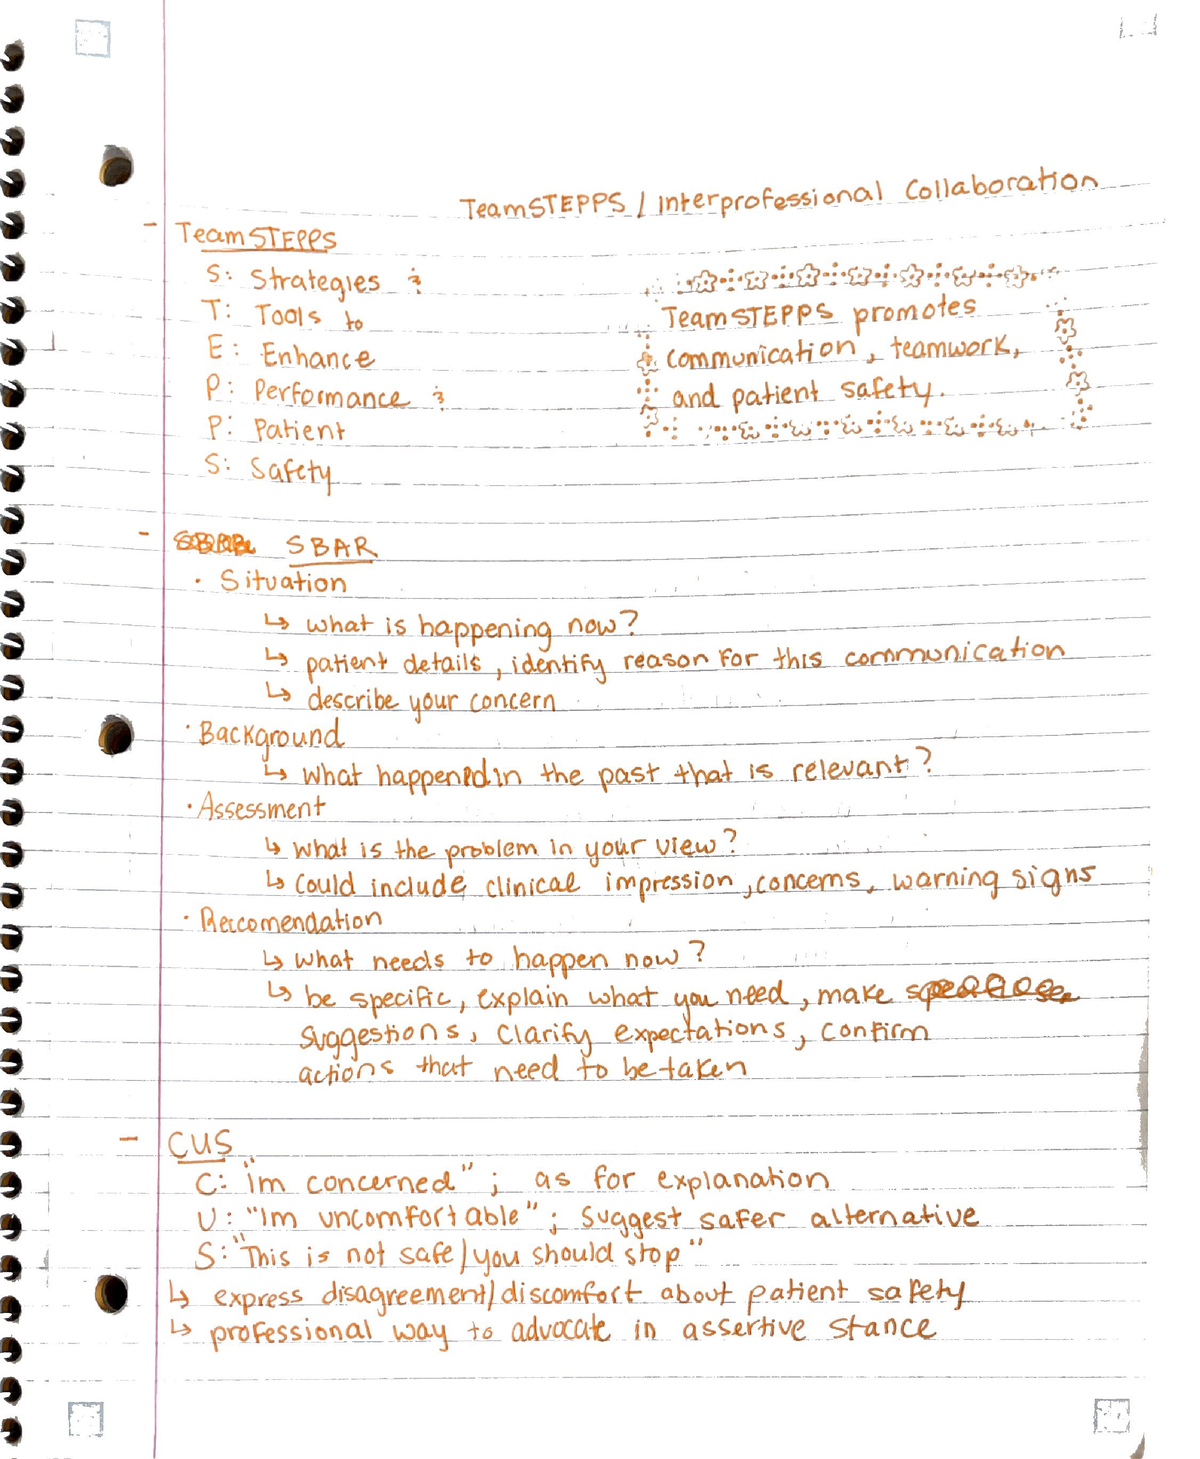 TeamSTEPPS / Interprofessional Collaboration
- TeamSTEPPS
S: Strategies &
T: Tools to
E: Enhance
P: Performance &
P: Patient
S: Safety
TeamSTEPPS promotes
communication, teamwork,
and patient safety.
- SBAR
· Situation
↳ what is happening now?
↳ patient details, identify reason for this communication
↳ describe your concern
· Background
↳ what happened in the past that is relevant?
· Assessment
↳ what is the problem in your view?
↳ could include clinical impression, concerns, warning signs
· Reccomendation
↳ what needs to happen now?
↳ be specific, explain what you need, make
suggestions, clarify expectations, confirm
actions that need to be taken
- CUS
C: "im concerned"; as for explanation
U: "Im uncomfortable"; suggest safer alternative
S: "This is not safe/you should stop"
↳ express disagreement/discomfort about patient safety
↳ professional way to advocate in assertive stance